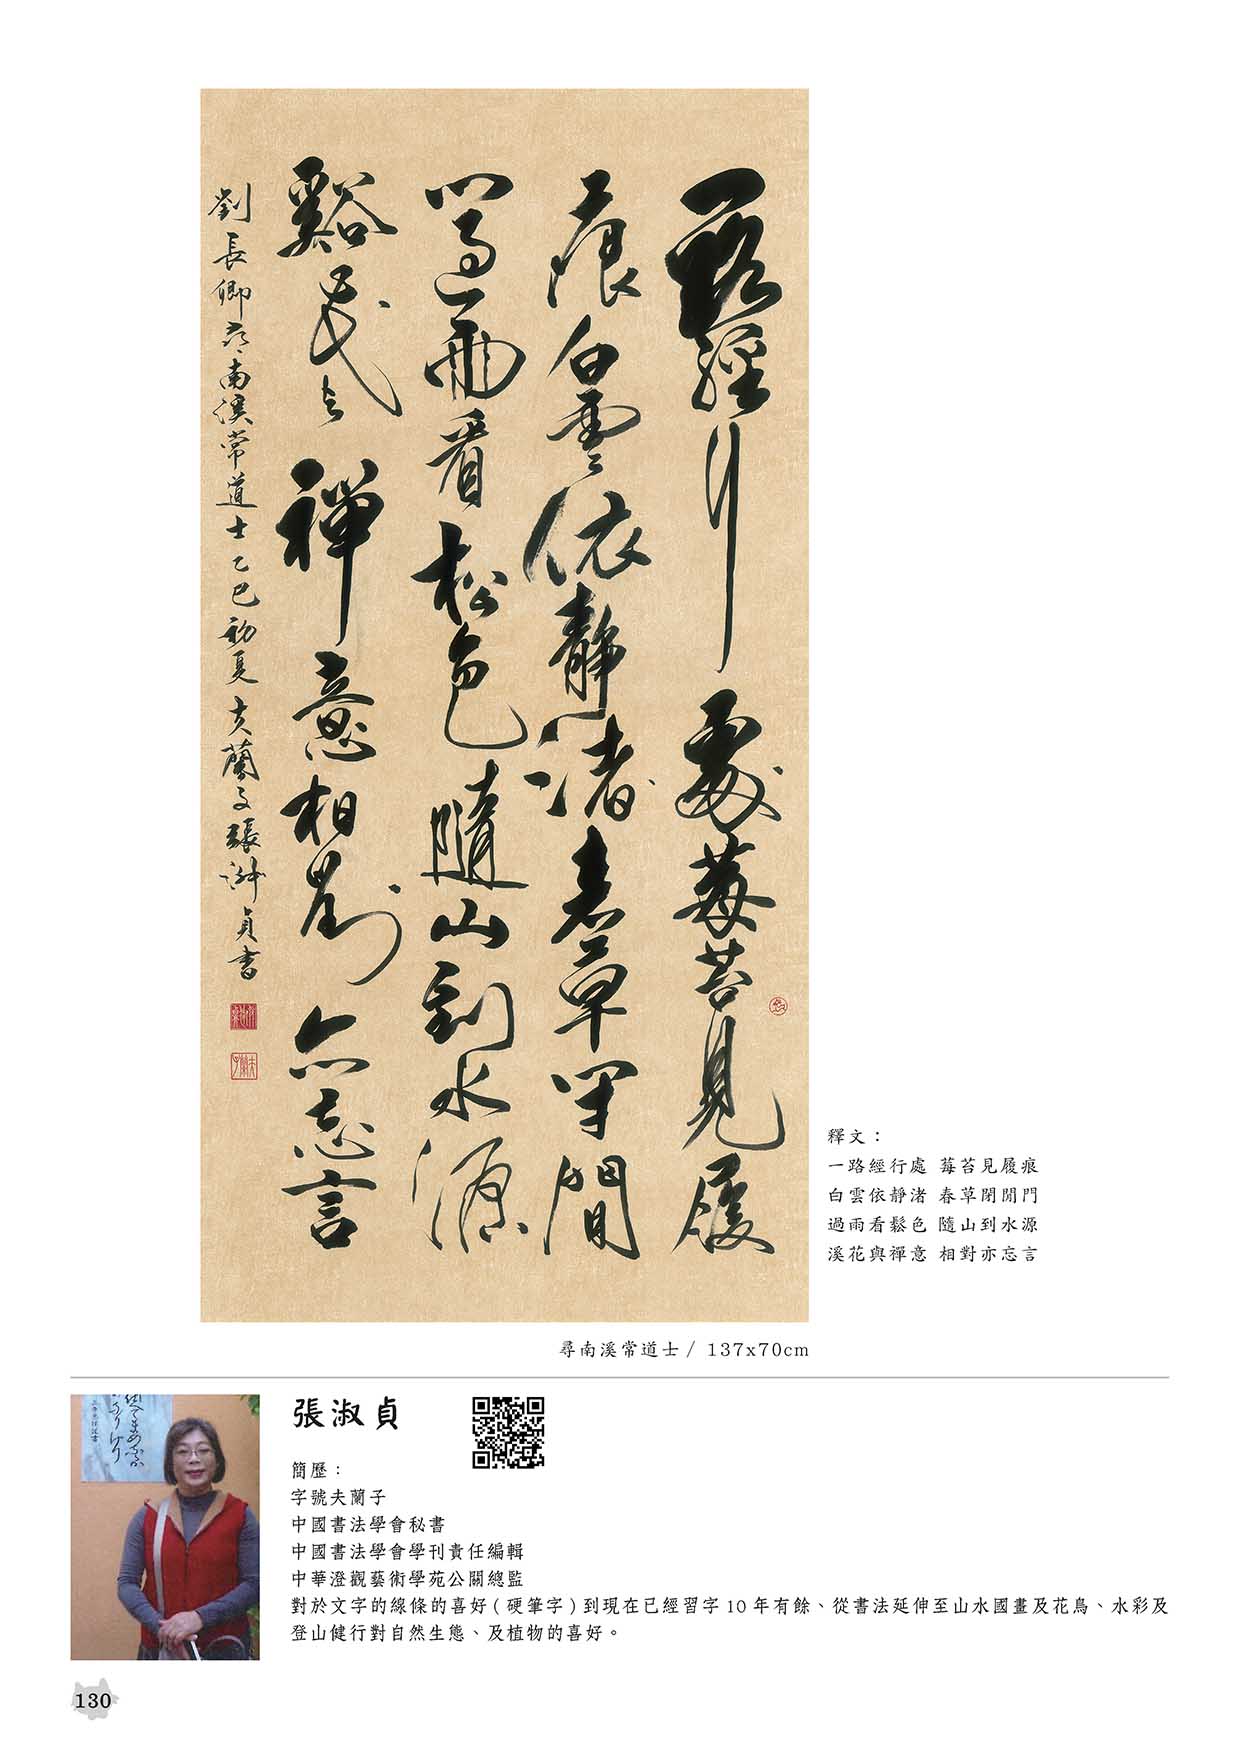 一路經行處莓苔見履
痕白雲依靜渚春草閉閒
門過雨看松色隨山到水源
谿花與禪意相對亦忘言
劉長卿尋南溪常道士乙巳初夏夫蘭子張淑貞書
釋文：
一路經行處 莓苔見履痕
白雲依靜渚 春草閉閒門
過雨看鬆色 隨山到水源
溪花與禪意 相對亦忘言
尋南溪常道士 / 137x70cm
張淑貞
簡歷：
字號夫蘭子
中國書法學會秘書
中國書法學會學刊責任編輯
中華澄觀藝術學苑公關總監
對於文字的線條的喜好（硬筆字）到現在已經習字 10 年有餘、從書法延伸至山水國畫及花鳥、水彩及
登山健行對自然生態、及植物的喜好。
130